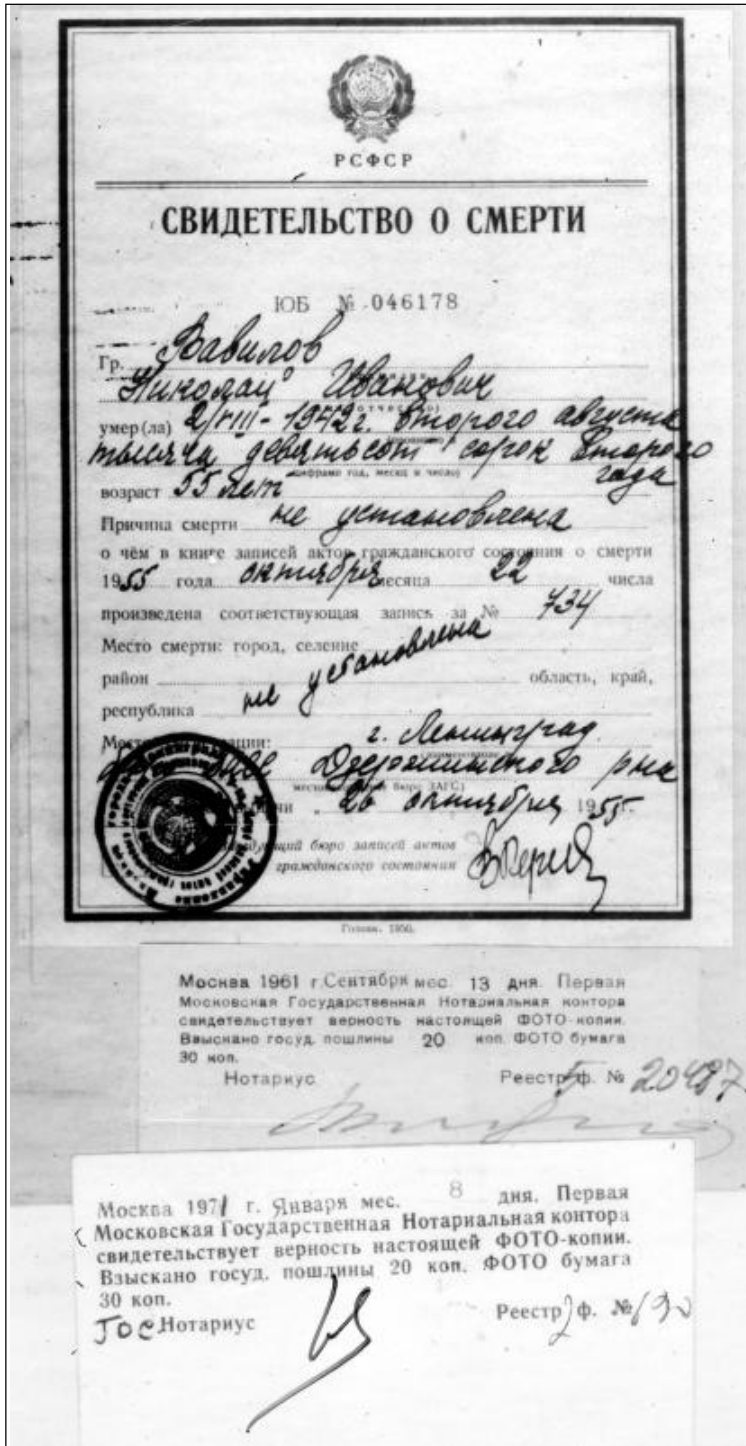 РСФСР
СВИДЕТЕЛЬСТВО О СМЕРТИ
ЮБ № 046178
Гр. Вавилов
Николай Иванович
умер(ла) 2/VIII-1942г. второго августа
тысяча девятьсот сорок второго
(цифрами год, месяц и число) года
возраст 55 лет
Причина смерти не установлена
о чём в книге записей актов гражданского состояния о смерти
1955 года октября месяца 22 числа
произведена соответствующая запись за № 734
Место смерти: город, селение
район не установлена область, край,
республика
г. Ленинград
Дзержинского р-на
26 октября 1955 г.
бюро записей актов
гражданского состояния
1950.
Москва 1961 г. Сентября мес. 13 дня. Первая
Московская Государственная Нотариальная контора
свидетельствует верность настоящей ФОТО-копии.
Взыскано госуд. пошлины 20 коп. ФОТО бумага
30 коп.
Нотариус Реестр ф. № 20487
Москва 1971 г. Января мес. 8 дня. Первая
Московская Государственная Нотариальная контора
свидетельствует верность настоящей ФОТО-копии.
Взыскано госуд. пошлины 20 коп. ФОТО бумага
30 коп.
Гос Нотариус Реестр ф. №